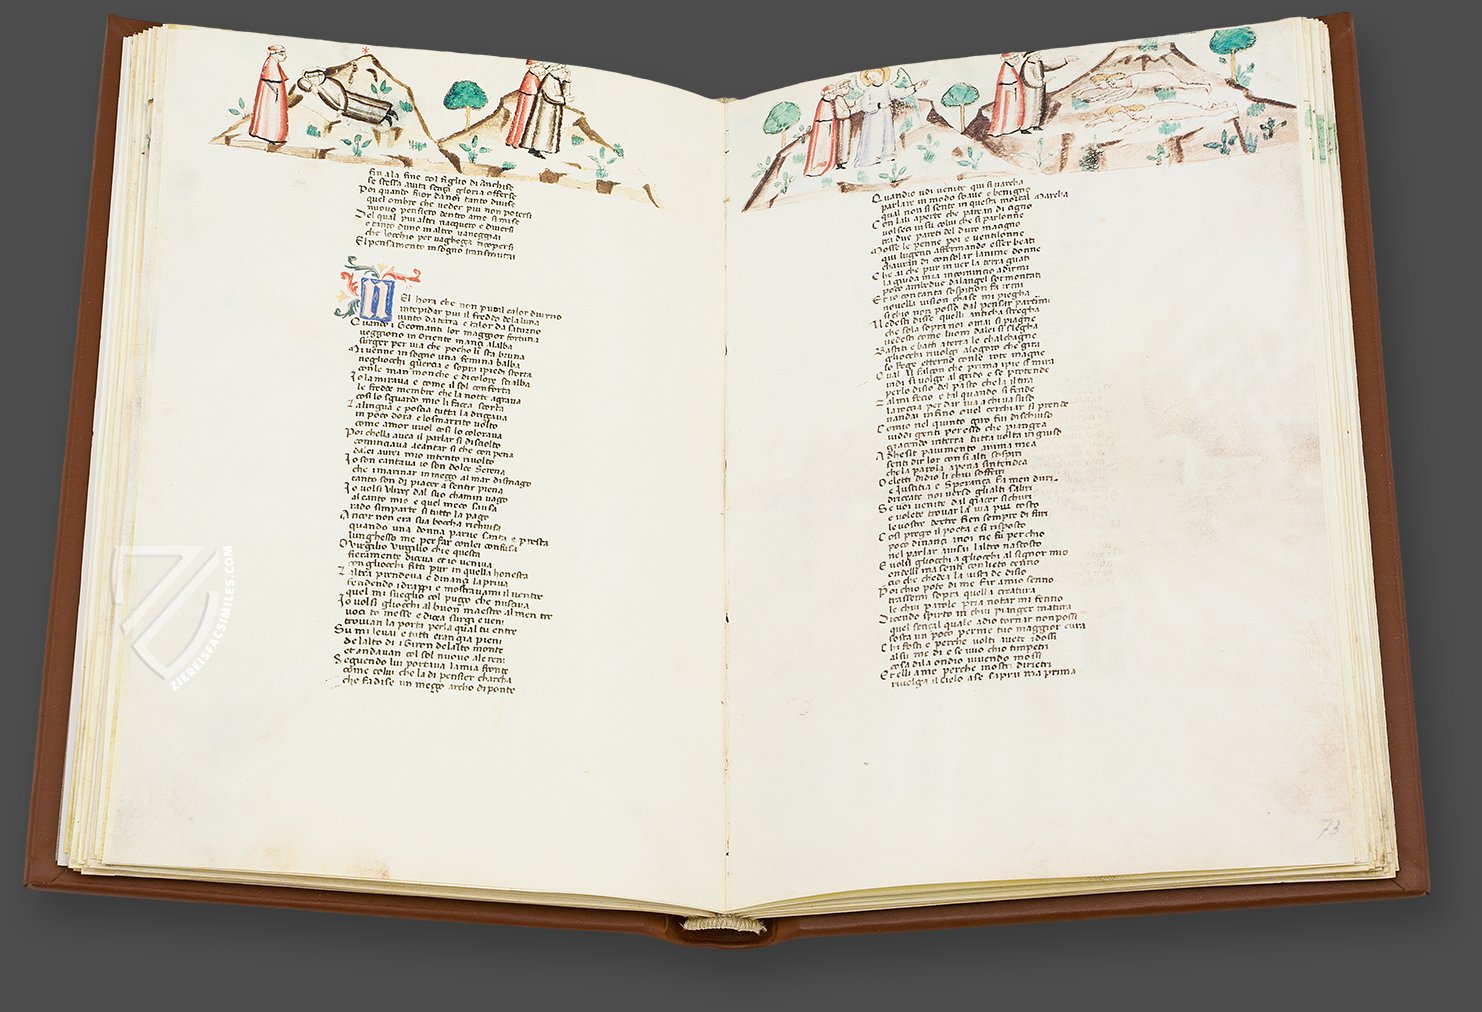 fin ala fine col figlio di anchise
se stessa auita sença gloria offerse
Poi quando fuor da noi tanto diuise
quel ombre che ueder piu non potersi
nuouo pensiero dentro ame si mise
Del qual piu altri nacquero e diuersi
e tanto duno in altro uaneggiai
che locchio per uagheçça ricopersi
El pensamento in sogno transmutai
Nel hora che non puo il calor diurno
intepidar piu il freddo dela luna
uinto da terra e talor da saturno
Quando i Geomanti lor maggior fortuna
ueggiono in oriente inançi al alba
surger per uia che pocho li sta bruna
Mi uenne in sogno una femina balba
negliocchi guercia e sopra ipiedi storta
con le man monche e di colore scialba
Io la miraua e come il sol conforta
le fredde membre che la notte agraua
cosi lo sguardo mio li facea scorta
La lingua e poscia tutta la driçaua
in poco dora e lo smarrito uolto
come amor uuol cosi lo coloraua
Poi chella auea il parlar si disciolto
cominciaua acantar si che con pena
da lei aurei mio intento riuolto
Io son cantaua io son dolce Serena
che i marinar in meggo al mar dismago
tanto son di piacer a sentir piena
Io uolsi Ulixes dal suo chamin uago
al canto mio e qual meco sausa
rado simparte si tutto la pago
Ancor non era sua boccha richiusa
quando una donna parue santa e presta
lunghesso me per far colei confusa
O uirgilio uirgilio chi e questa
fieramente diceua et io ueniua
con gliocchi fitti pur in quella honesta
Laltra prendeua e dinançi lapriua
fendendo i drappi e mostrauami il uentre
quel mi sueglio col puçço che nusciua
Io uolsi gliocchi al buon maestro al men tre
uoci to messe e dicea surgi e ueni
trouian la porta per la qual tu entre
Su mi leuai e tutti eran gia pieni
de lalto di i Giron del sacro monte
et andauan col sol nuouo ale reni
Seguendo lui portaua la mia fronte
come colui che la di pensier charcha
che fa di se un meggo archo di ponte
Quando udi uenite qui si uarcha
parlare in modo soaue e benigno
qual non si sente in questa mortal marcha
Con lali aperte che parean di cigno
uolseci in su colui che si parlonne
tra due pareti del duro macigno
Mosse le penne poi e uentilonne
qui lugenti affermando esser beati
chauran di consolar lanime donne
Che ai che pur in uer la terra guati
la guida mia incomincio adirmi
poco amendue dal angel sormontati
Et io con tanta sospition fa irmi
nouella uision chase mi piegha
si chio non posso dal pensar partirmi
Uedesti disse quella anticha stregha
che sola sopra noi omai si piagne
uedesti come luom da lei si slegha
Bastiti e batti aterra le chalchagne
gliocchi riuolgi alogoro che gira
lo Rege etterno con le rote magne
Qual il falcon che prima ipie si mira
indi si uolge al grido e si protende
per lo disio del pasto che la il tira
Tal mi fecio e tal quando si fende
la roccia per dar uia a chi ua suso
nandai infino oue l cerchiar si prende
Comio nel quinto giro fui dischiuso
uidi genti per esso che piangea
giacendo interra tutta uolta in giuso
Adhesit pauimento anima mea
senti dir lor con si alti sospiri
che la parola apena sintendea
O eletti di dio li chui soffriri
e Iustitia e Sperança fa men duri
driççate noi uerso gli alti saliri
Se uoi uenite dal giacer sichuri
e uolete trouar la uia piu tosto
le uostre destre sien sempre di furi
Cosi prego il poeta e si risposto
poco dinançi anoi ne fu per chio
nel parlar auisai laltro nascosto
E uolsi gliocchi a gliocchi al signor mio
ondelli ma senti con lieto cenno
cio che chedea la uista de disio
Poi chio pote di me far amio senno
trassemi sopra quella creatura
le chui parole pria notar mi fenno
Dicendo spirto in chui pianger matura
quel sença l quale a dio tornar non possi
sosta un poco per me tuo maggior cura
Chi fosti e perche uolti auete i dossi
al su me di e se uuo chio timpetri
cosa di la ondio uiuendo mossi
Et elli ame perche inostri diretri
riuolga il cielo a se saprai ma prima
73
ZIEREISFACSIMILES.COM